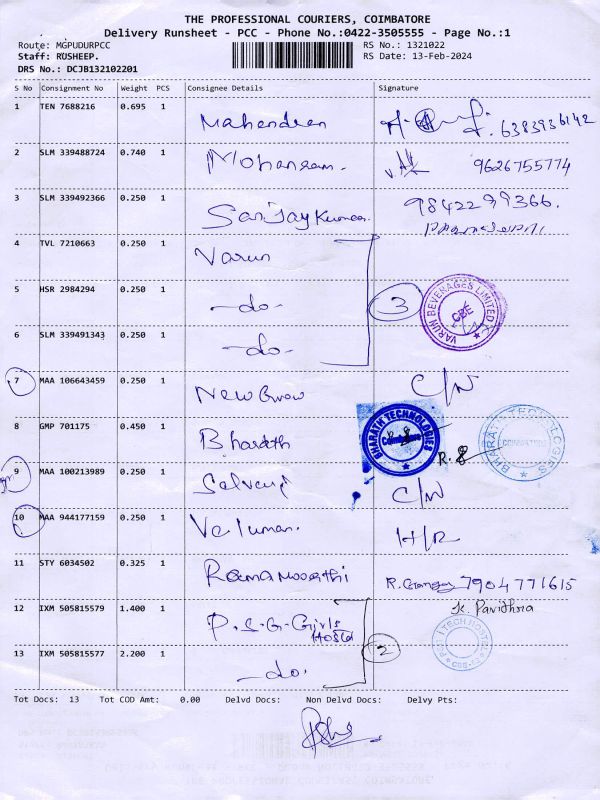 THE PROFESSIONAL COURIERS, COIMBATORE
Delivery Runsheet - PCC - Phone No.:0422-3505555 - Page No.:1
Route: MGPUDURPCC RS No.: 1321022
Staff: RUSHEEP. RS Date: 13-Feb-2024
DRS No.: DCJB132102201
S No Consignment No Weight PCS Consignee Details Signature
1 TEN 7688216 0.695 1 Mahendran 6383936142
2 SLM 339488724 0.740 1 Mohanram. 9626755774
3 SLM 339492366 0.250 1 Sanjay Kumar. 9842299366.
4 TVL 7210663 0.250 1 Varun
5 HSR 2984294 0.250 1 -do- 3 VARUN BEVERAGES LIMITED CBE
6 SLM 339491343 0.250 1 -do-
7 MAA 106643459 0.250 1 C/N
8 GMP 701175 0.450 1 Bharath BHARATH TECHNOLOGIES Coimbatore R.S BHARATH TECHNOLOGIES COIMBATORE
9 MAA 100213989 0.250 1 Selvaraj C/N
10 MAA 944177159 0.250 1 Velumani.
11 STY 6034502 0.325 1 Ramamoorthi 7904771615
12 IXM 505815579 1.400 1 P.S.G-Girls Hostel K. Pavithra
13 IXM 505815577 2.200 1 -do. 2
Tot Docs: 13 Tot COD Amt: 0.00 Delvd Docs: Non Delvd Docs: Delvy Pts: